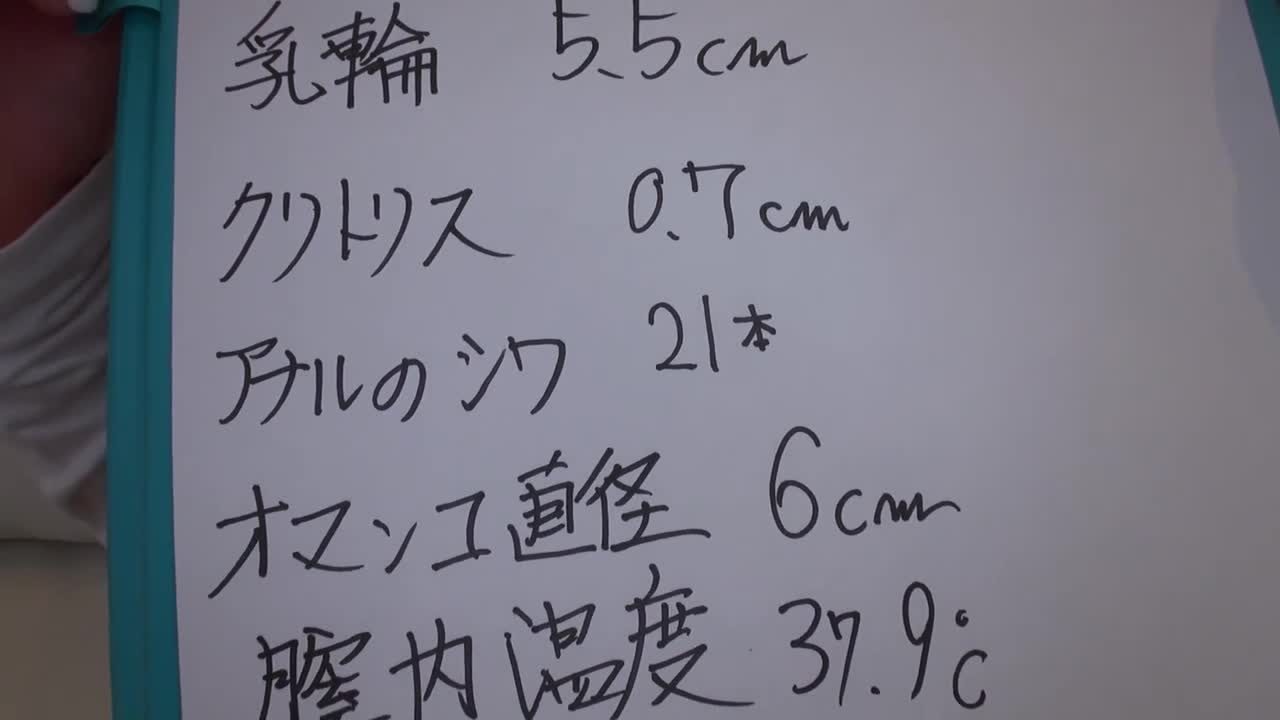 乳輪 5.5cm
クリトリス 0.7cm
アナルのシワ 21本
オマンコ直径 6cm
膣内温度 37.9℃